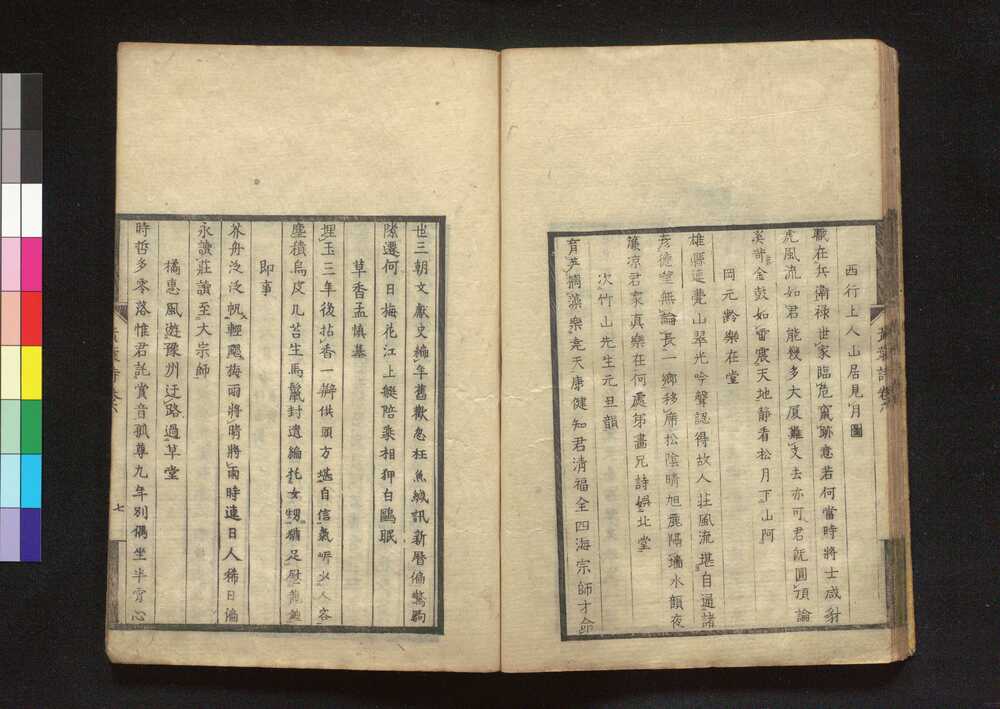 西行上人山居見月圖
職在兵衛祿世家臨危竄跡意若何當時將士咸豺
虎風流如君能幾多大厦難支去亦可君既圓頂論
金鼓如雷震天地靜看松月下山阿
岡元齡樂在堂
雄縣連甍山翠光吟聲認得故人莊風流堪自遍諸
彥德望無論長一鄉移席松陰晴旭麗隔墻水韻夜
簾凉君家真樂在何處弟畫兄詩娛北堂
次竹山先生元旦韻
育英摛藻樂堯天康健知君清福全四海宗師才命
世三朝文獻史編年舊歡忽枉魚緘訊新曆偏驚駒
隙遷何日梅花江上艇陪乘相狎白鷗眠
草香孟愼墓
埋玉三年後拈香一瓣供頭方堪自信氣嚼少人容
塵積烏皮几苔生馬鬣封遺編托女甥猶足慰龍
即事
芥舟泛泛帆輕颺梅雨將晴將雨時連日人稀日偏
永讀莊讀至大宗師
橘惠風遊豫州迂路過草堂
時哲多零落惟君託賞音孤尊九年別偶坐半宵心
七